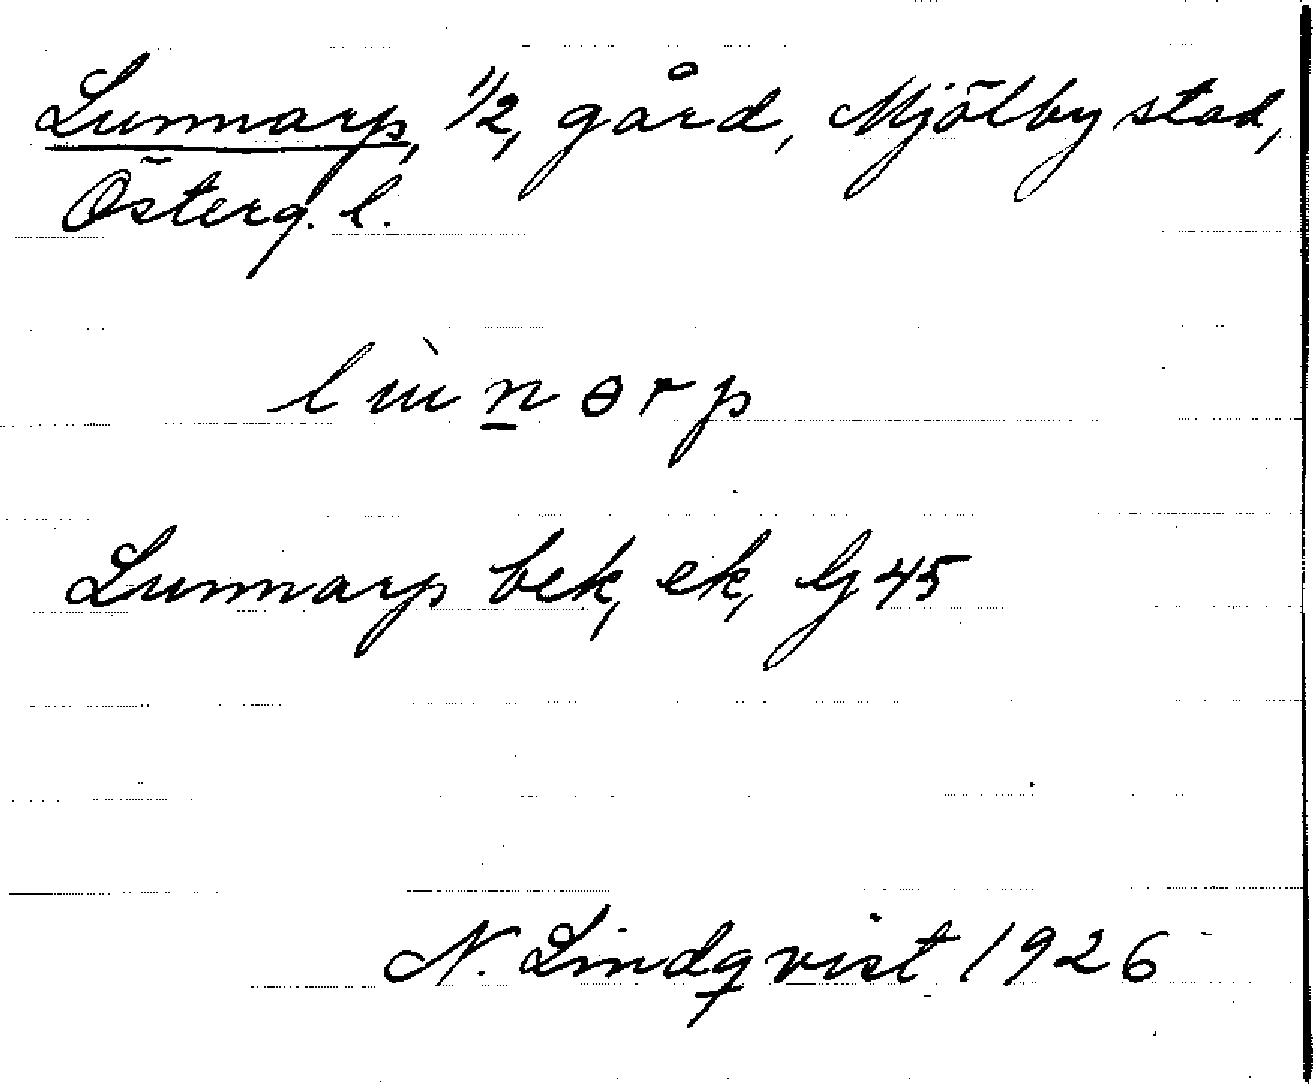 Lunnarp, 1/2, gård, Mjölby stad,
Österg. l.
lùn̲ɵrp
Lunnarp bek, ek, Gj 45
N. Lindqvist 1926